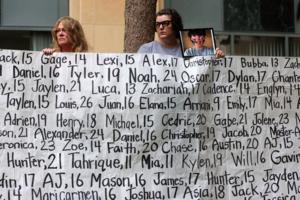 ack, 15 Gage, 14 Lexi, 15 Alex, 17 Bubba, 13 Zack
Daniel, 16 Tyler, 19 Noah, 24 Oscar, 17 Dylan, 17 Chant
y, 15 Jaylen, 21 Luca, 13 Zachariah, 17 Cadence, 14 Enslyn,
Jaylen, 15 Louis, 26 Juan, 16 Elana, 15 Amari, 9 Emily, 17 Mia, 14
Adrien, 19 Henry, 18 Michael, 15 Cedric, 20 Gabe, 21 Jolene, 23
son, 21 Alexander, 24 Daniel, 16 Christopher, Jacob, 20 Master
eronica, 23 Zoe, 14 Faith, 20 Chase, 16 Austin, 20 AJ, 15
Hunter, 21 Tahrique, 11 Mia, 11 Kylen, 19 Will, 16 Gavin
din, 17 AJ, 16 Mason, 16 James, 17 Hunter, 15 Jayden
14 Maricarmen, 16 Joshua, 17 Asia, 18 Jack, 20
Christopher